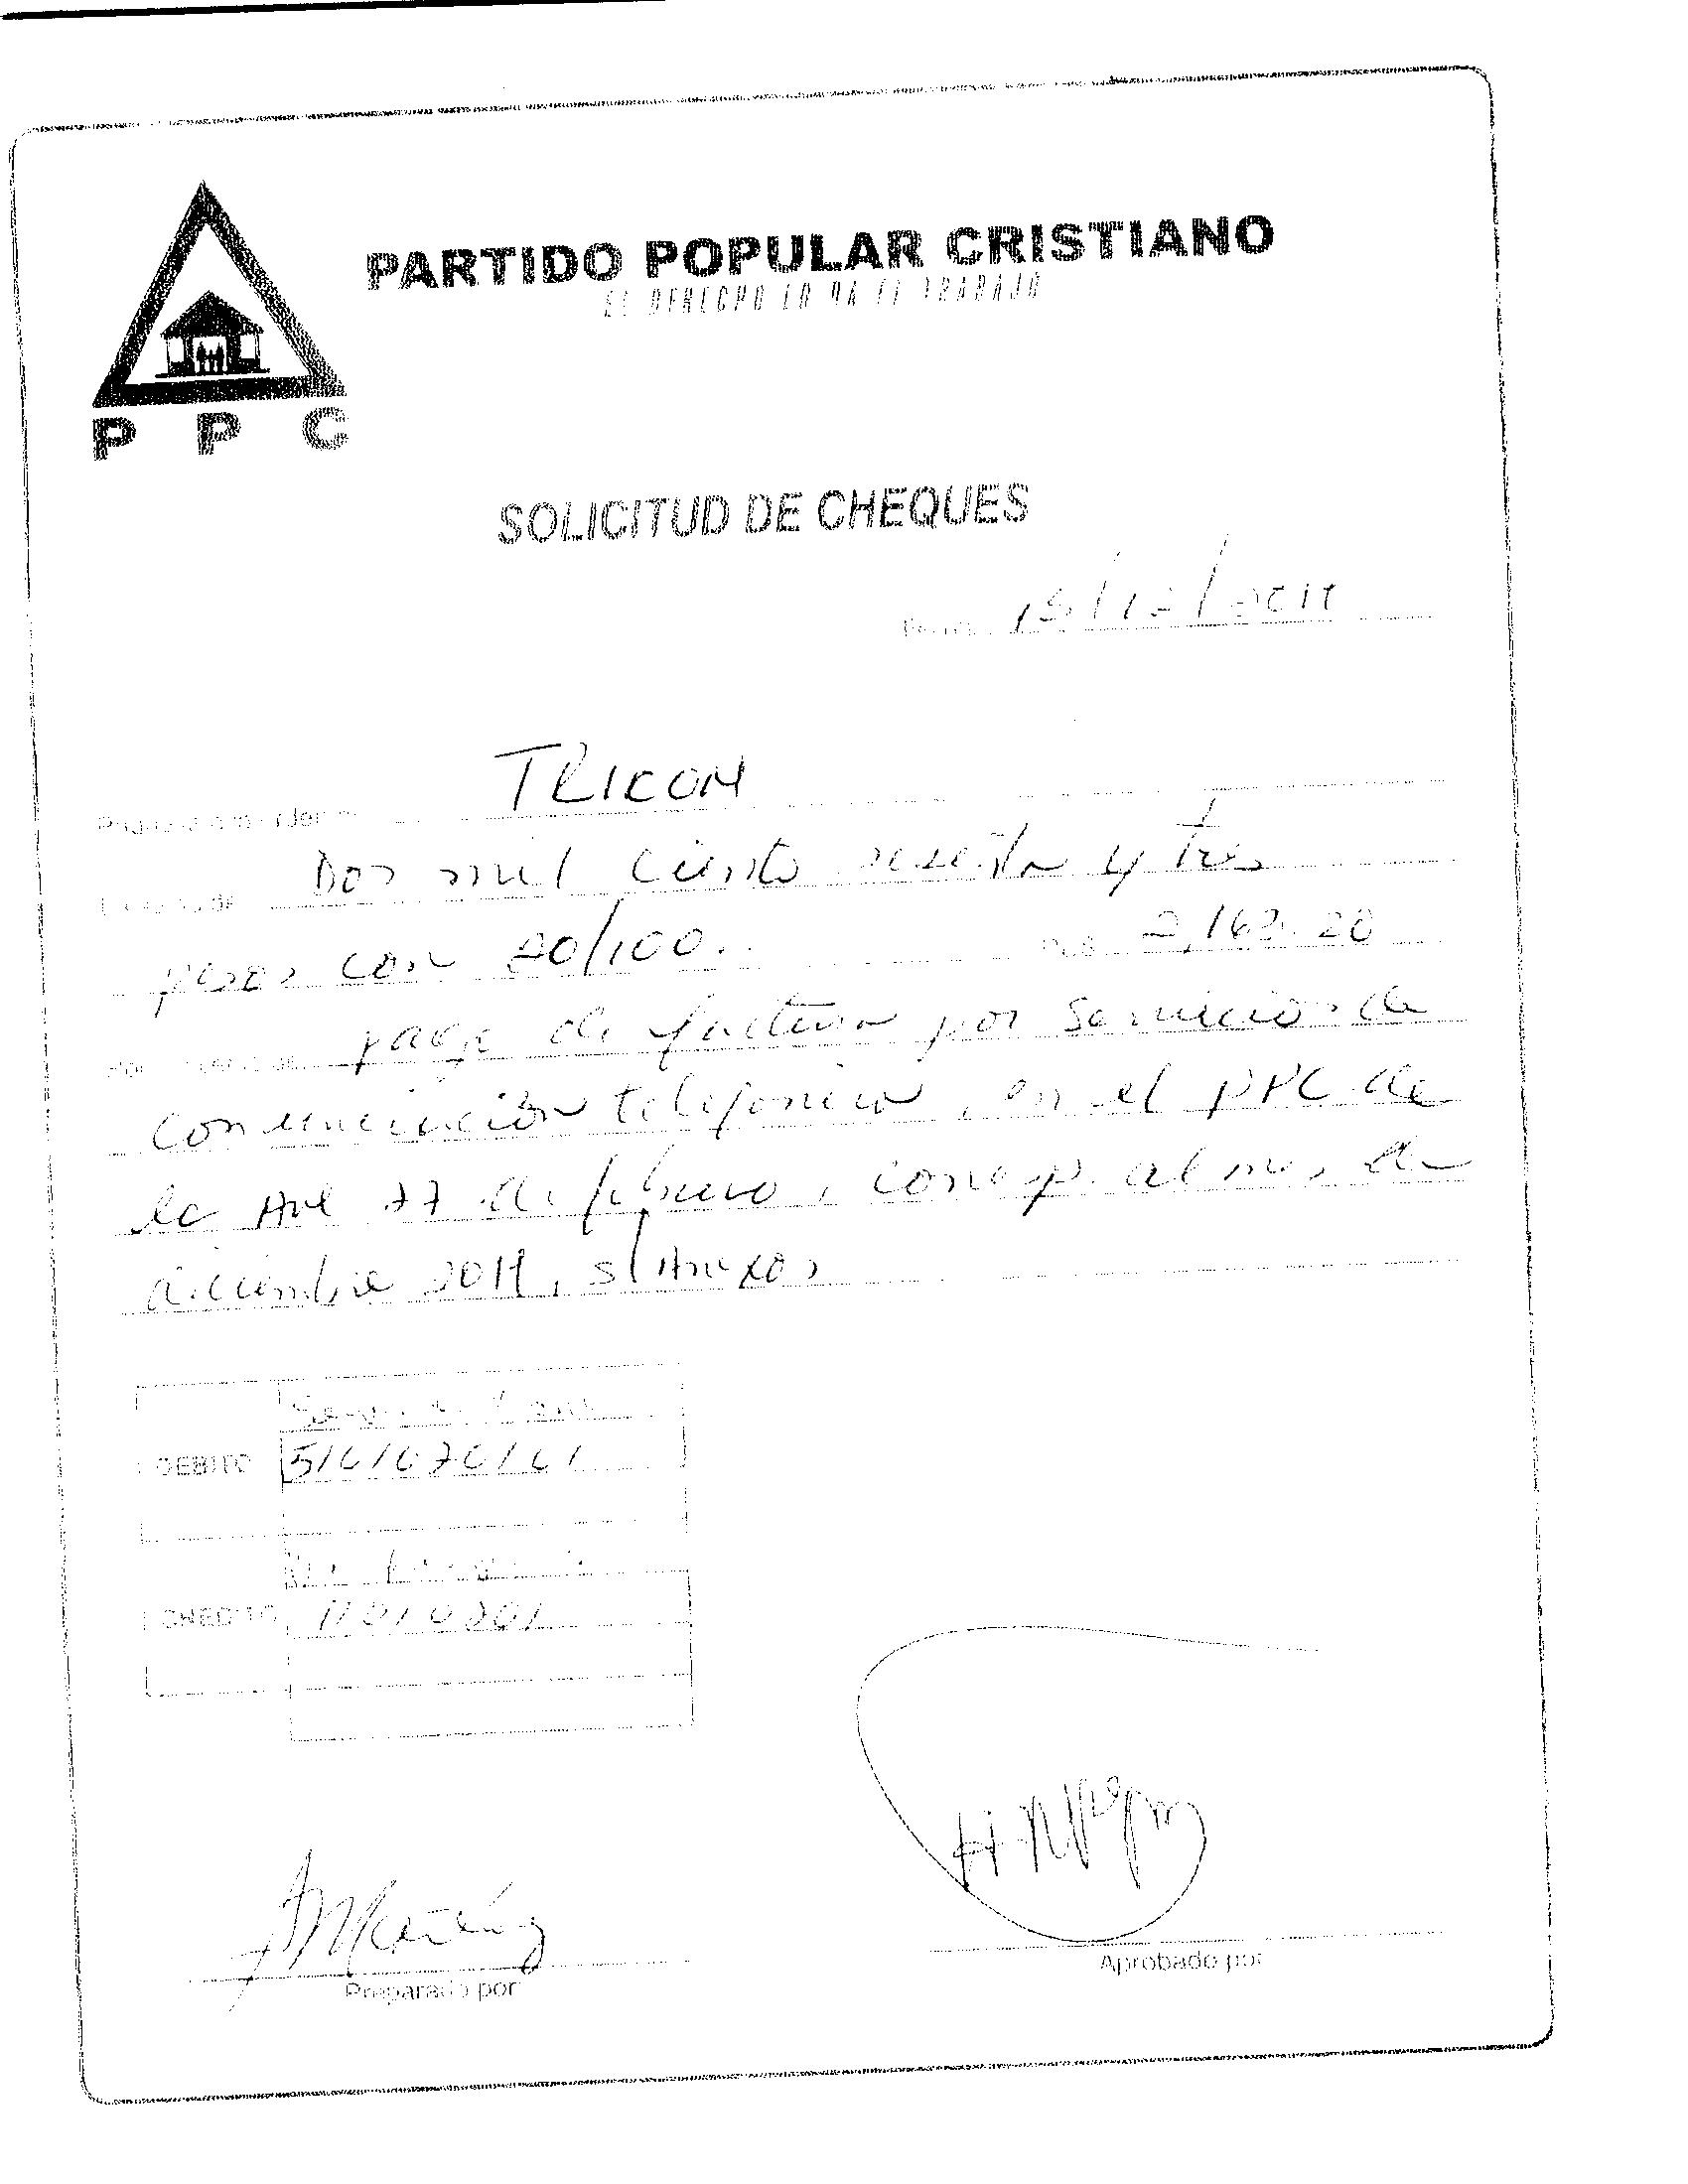 PARTIDO POPULAR CRISTIANO
EL DERECHO LO DA EL TRABAJO
P P C
SOLICITUD DE CHEQUES
Fecha 15/12/2011
TRICOM
Dos mil ciento sesenta y tres
pesos con 20/100. RD$ 2,163.20
pago de factura por servicio de
comunicación telefonica, en el PPC de
la Ave 27 de febrero, corresp. al mes de
diciembre 2011, s/Anexos
DEBITO
CREDITO
Preparado por
Aprobado por